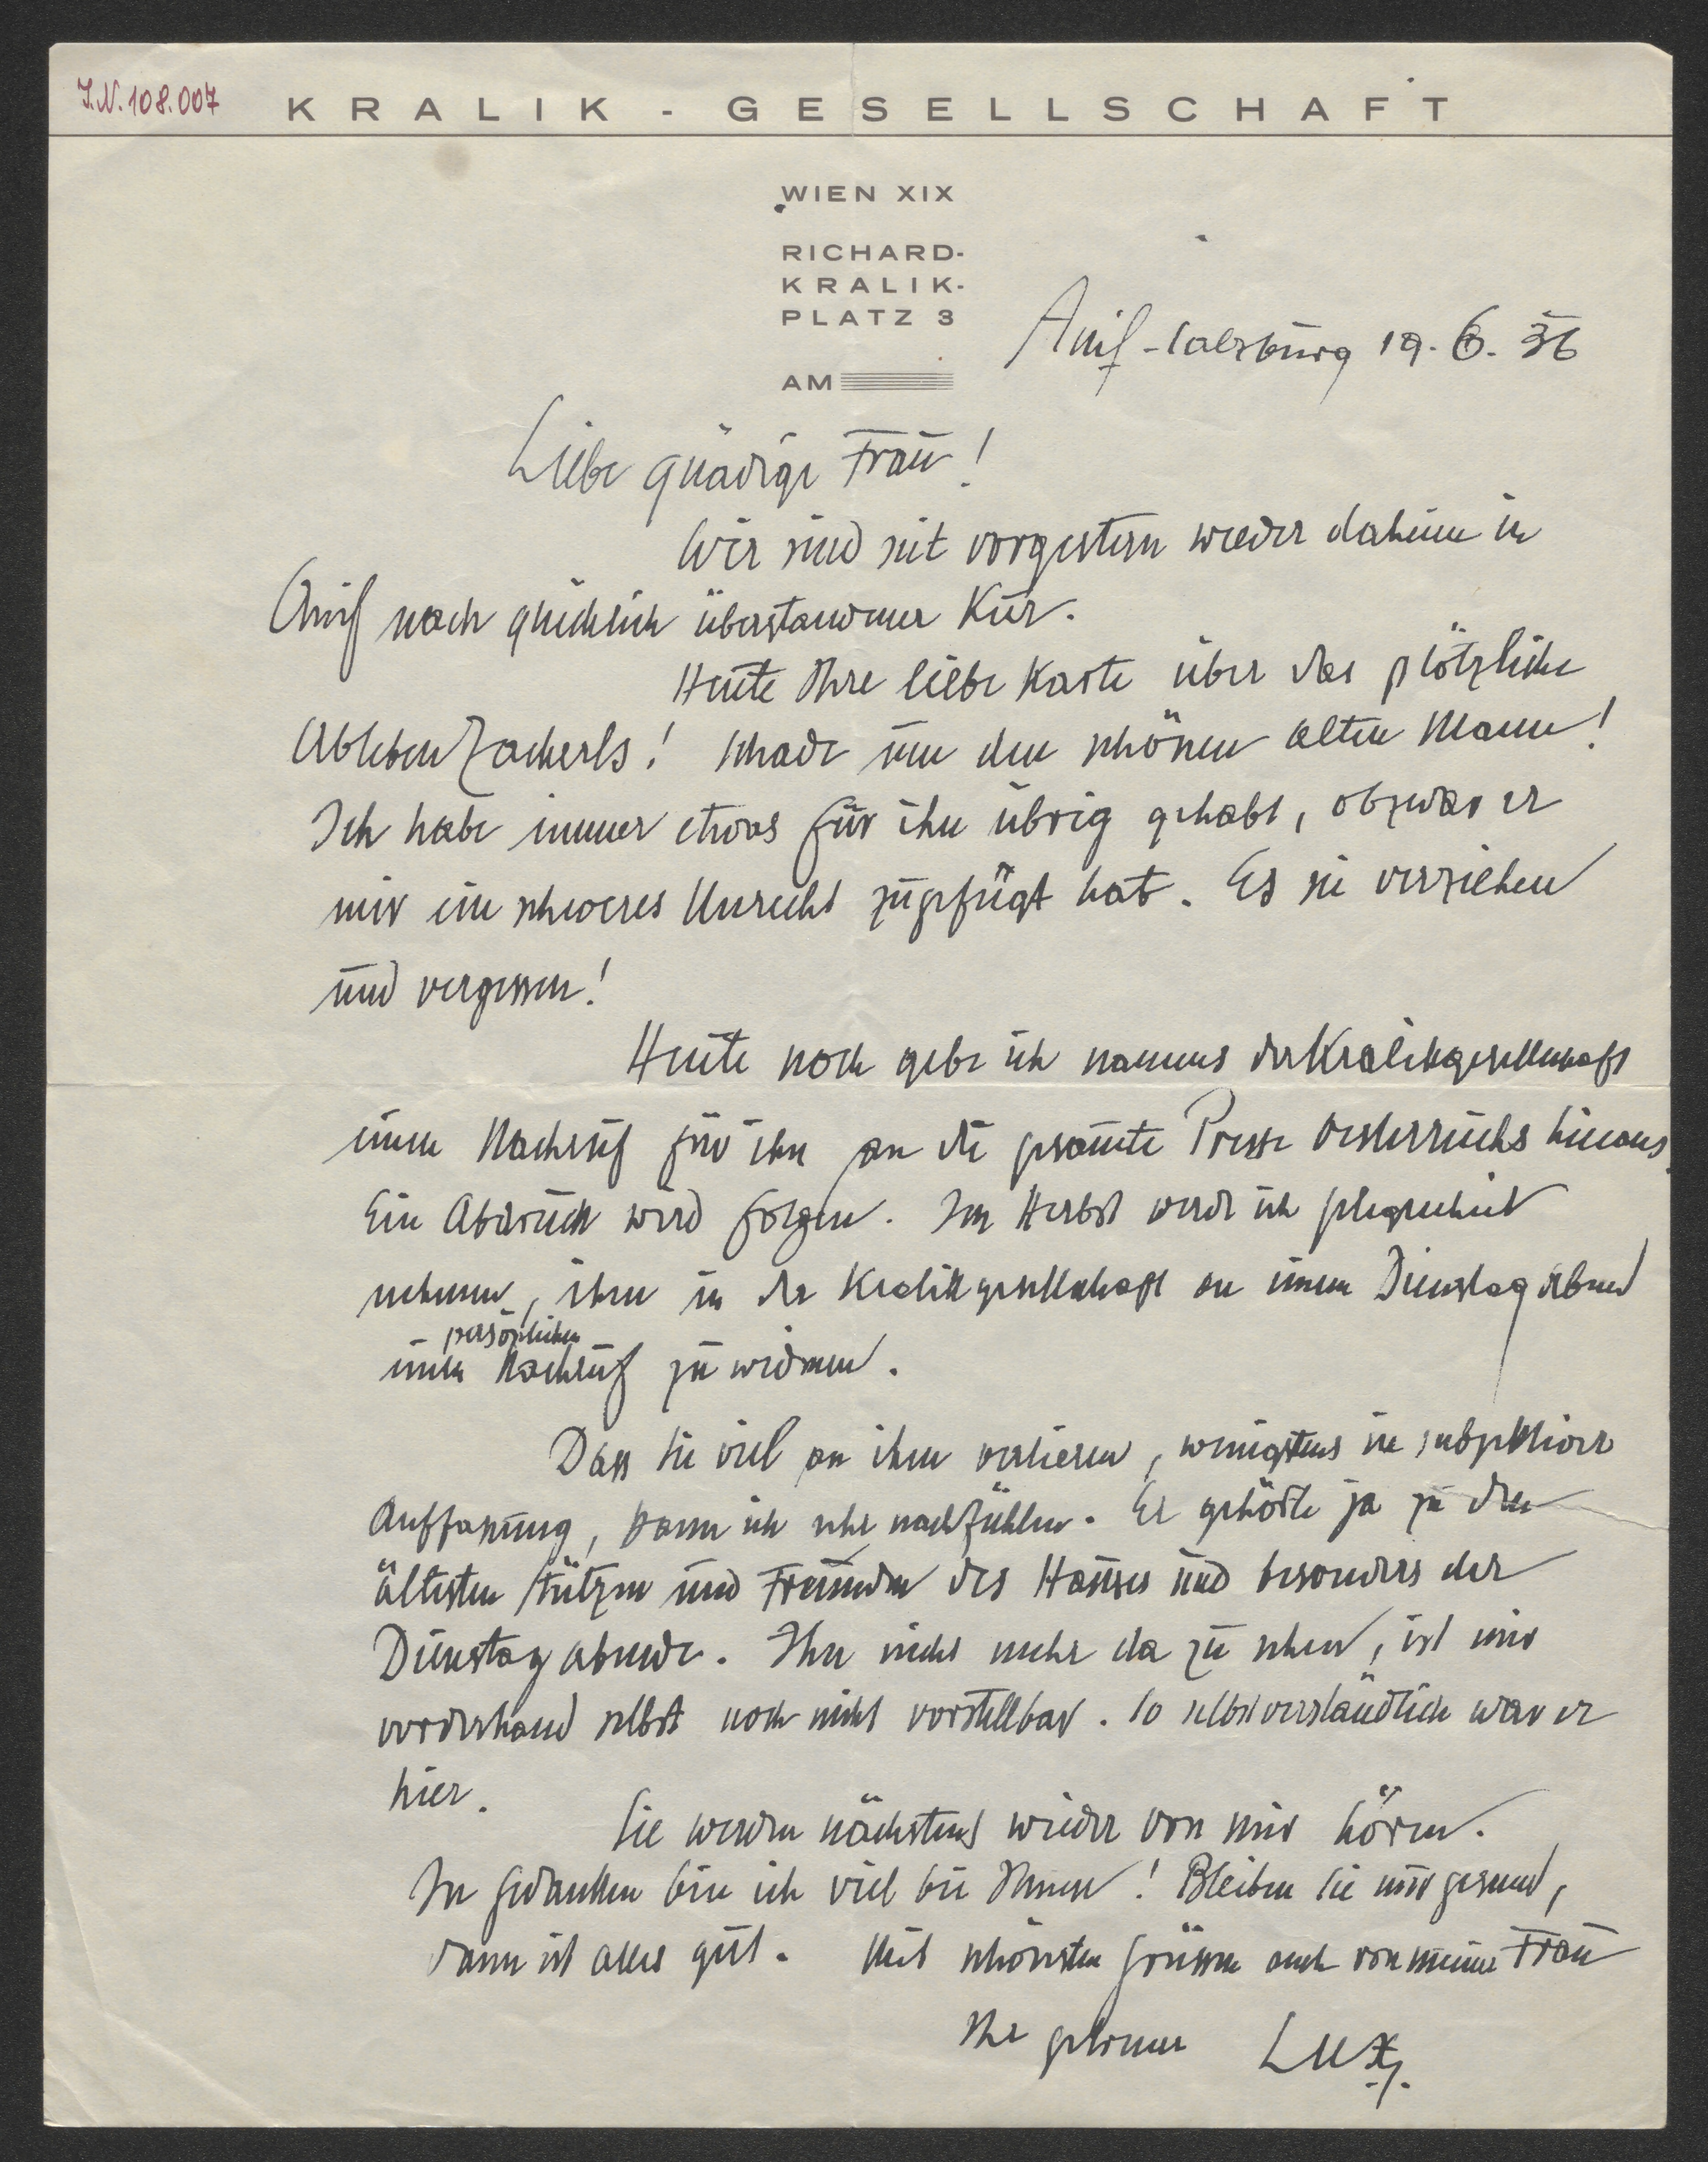 I.N. 108.007
KRALIK - GESELLSCHAFT
WIEN XIX
RICHARD-
KRALIK-
PLATZ 3
AM
Anif-Salzburg 19. 6. 36
Liebe gnädige Frau!
Wir sind seit vorgestern wieder daheim in
Anif nach glücklich überstandener Kur.
Heute Ihre liebe Karte über das plötzliche
Ableben Zacherls! Schade um den schönen alten Mann!
Ich habe immer etwas für ihn übrig gehabt, obzwar er
mir ein schweres Unrecht zugefügt hat. Es sei verziehen
und vergessen!
Heute noch gebe ich namens der Kralikgesellschaft
einen Nachruf für ihn an die gesamte Presse Oesterreichs hinaus.
Ein Abdruck wird folgen. Im Herbst werde ich Gelegenheit
nehmen, ihm in der Kralikgesellschaft an einem Dienstag Abend
persönlichen
einen Nachruf zu widmen.
Dass Sie viel an ihm verlieren, wenigstens in subjektiver
Auffassung, kann ich sehr nachfühlen. Er gehörte ja zu den
ältesten Stützen und Freunden des Hauses und besonders der
Dienstag abende. Ihn nicht mehr da zu sehen, ist mir
vorderhand selbst noch nicht vorstellbar. So selbstverständlich war er
hier.
Sie werden nächstens wieder von mir hören.
In Gedanken bin ich viel bei Ihnen! Bleiben Sie mir gesund,
dann ist alles gut. Mit schönsten Grüssen auch von meiner Frau
Ihr getreuer Lux